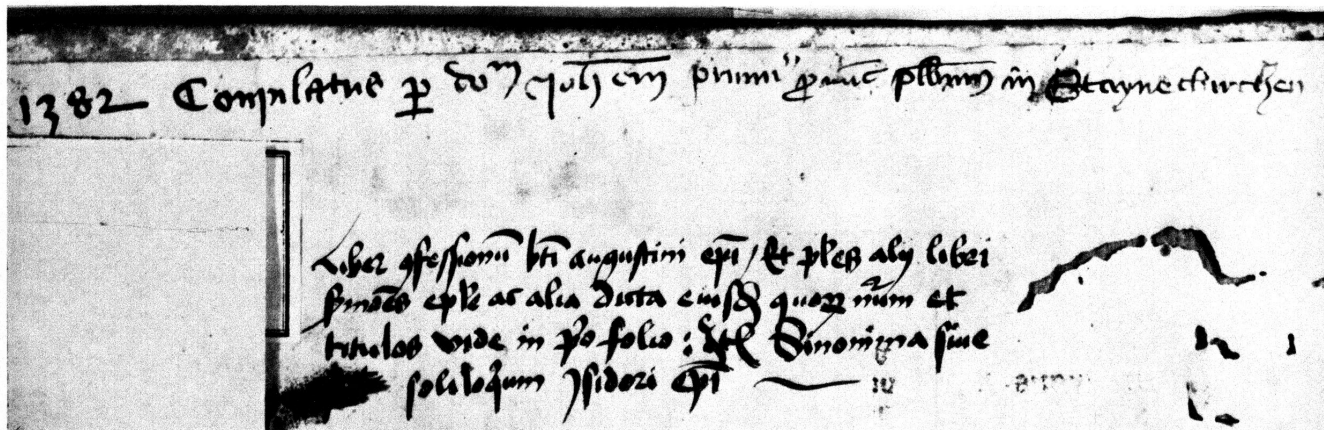 1382 Compilatus ꝑ dom̄ Joh̄em pͥmū ꝓ nūc plbn̄m in Stayneckirchen
Liber ꝯfessionū bti̅ augustini ep̅i / Et pl̅es alij libri
s̅mo̅es ep̅le ac alia dicta eiusd̅ quoꝝ nu̅m et
titulos vide in p̅o folio : It̅ Sinonima siue
soliloq̅um Jsidori ep̅i